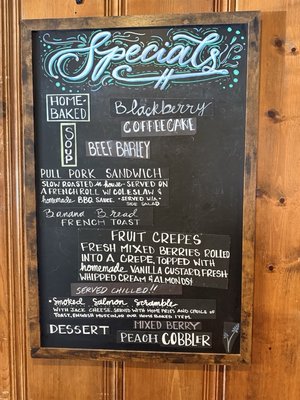 Specials
HOME-
BAKED
Blackberry
COFFEECAKE
SOUP
BEEF BARLEY
PULL PORK SANDWICH
SLOW ROASTED in house - SERVED ON
A FRENCH ROLL W/ COLESLAW &
homemade BBQ SAUCE. - SERVED W/ A -
SIDE SALAD
Banana Bread
FRENCH TOAST
FRUIT CREPES
FRESH MIXED BERRIES ROLLED
INTO A CREPE, TOPPED WITH
homemade VANILLA CUSTARD FRESH
WHIPPED CREAM & ALMONDS!
SERVED CHILLED!!
• Smoked Salmon Scramble
WITH JACK CHEESE. SERVED WITH HOME FRIES AND CHOICE OF
TOAST, ENGLISH MUFFIN, OR OUR HOME BAKED ITEM.
DESSERT
MIXED BERRY
PEACH COBBLER